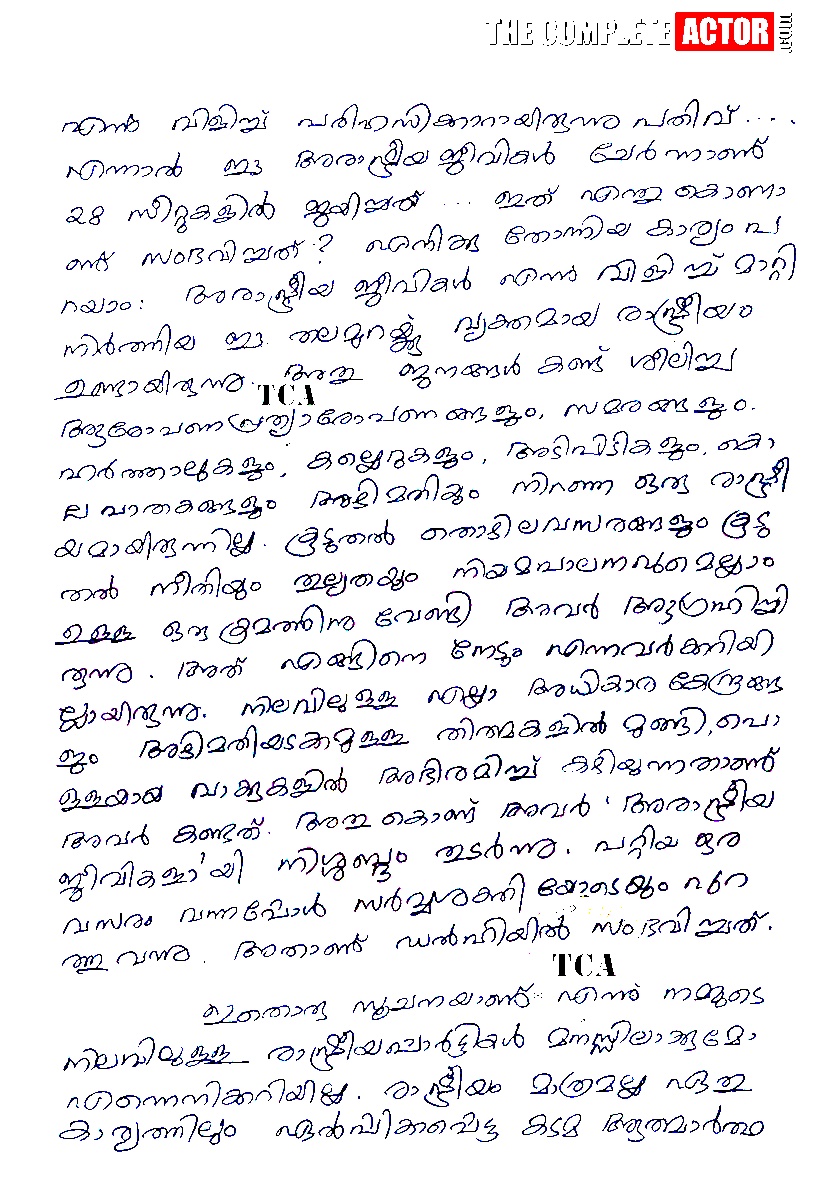 THE COMPLETE ACTOR .COM
എന്ന് വിളിച്ച് പരിഹസിക്കാറായിരുന്നു പതിവ് ....
എന്നാൽ ഈ അരാഷ്ട്രീയ ജീവികൾ ചേർന്നാണ്
28 സീറ്റുകളിൽ ജയിച്ചത് ... ഇത് എന്തു കൊണാ
ണ്ട് സംഭവിച്ചത്? എനിക്കു തോന്നിയ കാര്യം പ
റയാം: അരാഷ്ട്രീയ ജീവികൾ എന്ന് വിളിച്ച് മാറ്റി
നിർത്തിയ ഈ തലമുറയ്ക്കു വ്യക്തമായ രാഷ്ട്രീയം
ഉണ്ടായിരുന്നു. അതു ജനങ്ങൾ കണ്ട് ശീലിച്ച
TCA
ആരോപണപ്രത്യാരോപണങ്ങളും, സമരങ്ങളും.
ഹർത്താലുകളും, കല്ലേറുകളും, അടിപിടികളും, കൊ
ലപാതകങ്ങളും അഴിമതിയും നിറഞ്ഞ ഒരു രാഷ്ട്രീ
യമായിരുന്നില്ല. കൂടുതൽ തൊഴിലവസരങ്ങളും കൂടു
തൽ നീതിയും തുല്യതയും നിയമപാലനവുമെല്ലാം
ഉള്ള ഒരു ക്രമത്തിനു വേണ്ടി അവർ ആഗ്രഹിച്ചി
രുന്നു. അത് എങ്ങിനെ നേടും എന്നവർക്കറിയി
ല്ലായിരുന്നു. നിലവിലുള്ള എല്ലാ അധികാര കേന്ദ്രങ്ങ
ളും അഴിമതിയടക്കമുള്ള തിന്മകളിൽ മുങ്ങി, പൊ
ള്ളയായ വാക്കുകളിൽ അഭിരമിച്ച് കഴിയുന്നതാണ്
അവർ കണ്ടത്. അതു കൊണ്ട് അവർ 'അരാഷ്ട്രീയ
ജീവികളാ'യി നിശ്ശബ്ദം തുടർന്നു. പറ്റിയ ഒര
വസരം വന്നപ്പോൾ സർവ്വശക്തിയോടെയും പുറ
ത്തു വന്നു. അതാണ് ഡൽഹിയിൽ സംഭവിച്ചത്.
TCA
ഇതൊരു സൂചനയാണ് എന്ന് നമ്മുടെ
നിലവിലുള്ള രാഷ്ട്രീയപാർട്ടികൾ മനസ്സിലാക്കുമോ
എന്നെനിക്കറിയില്ല. രാഷ്ട്രീയം മാത്രമല്ല ഏതു
കാര്യത്തിലും ഏൽപ്പിക്കപ്പെട്ട കടമ ആത്മാർത്ഥ